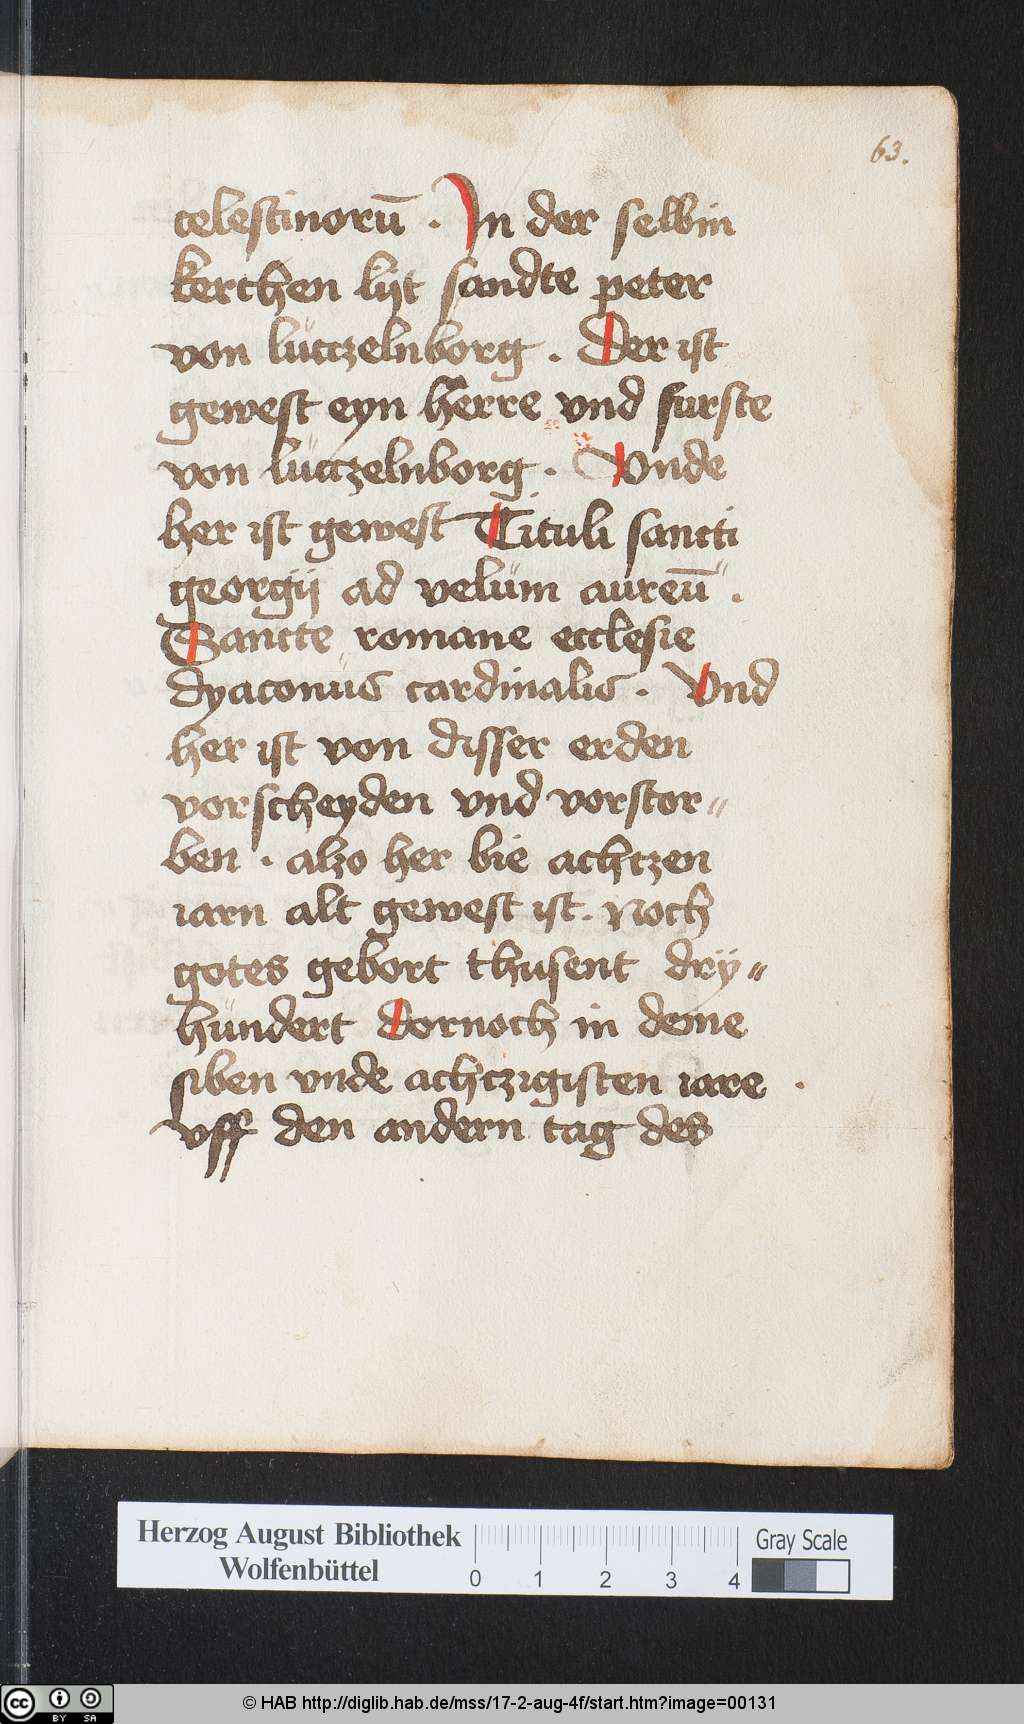 63.
celestinorū . In der selbin
kerchen lijt sandte peter
von lutczelnborg . Der ist
gewest eyn herre vnd furste
von lutczelnborg . Vnde
her ist gewest Tituli sancti
georgij ad velum aureū .
Sancte romane ecclesie
dyaconus cardinalis . Vnd
her ist von disser erden
vorscheyden vnd vorstor=
ben . alzo her bie achtzen
iarn alt gewest ist . Noch
gotes gebort thusent dry=
hundert Dornoch in deme
siben vnde achtzigisten iare .
vff den andern tag des
Herzog August Bibliothek
Wolfenbüttel
0 1 2 3 4
Gray Scale
cc BY SA
© HAB http://diglib.hab.de/mss/17-2-aug-4f/start.htm?image=00131